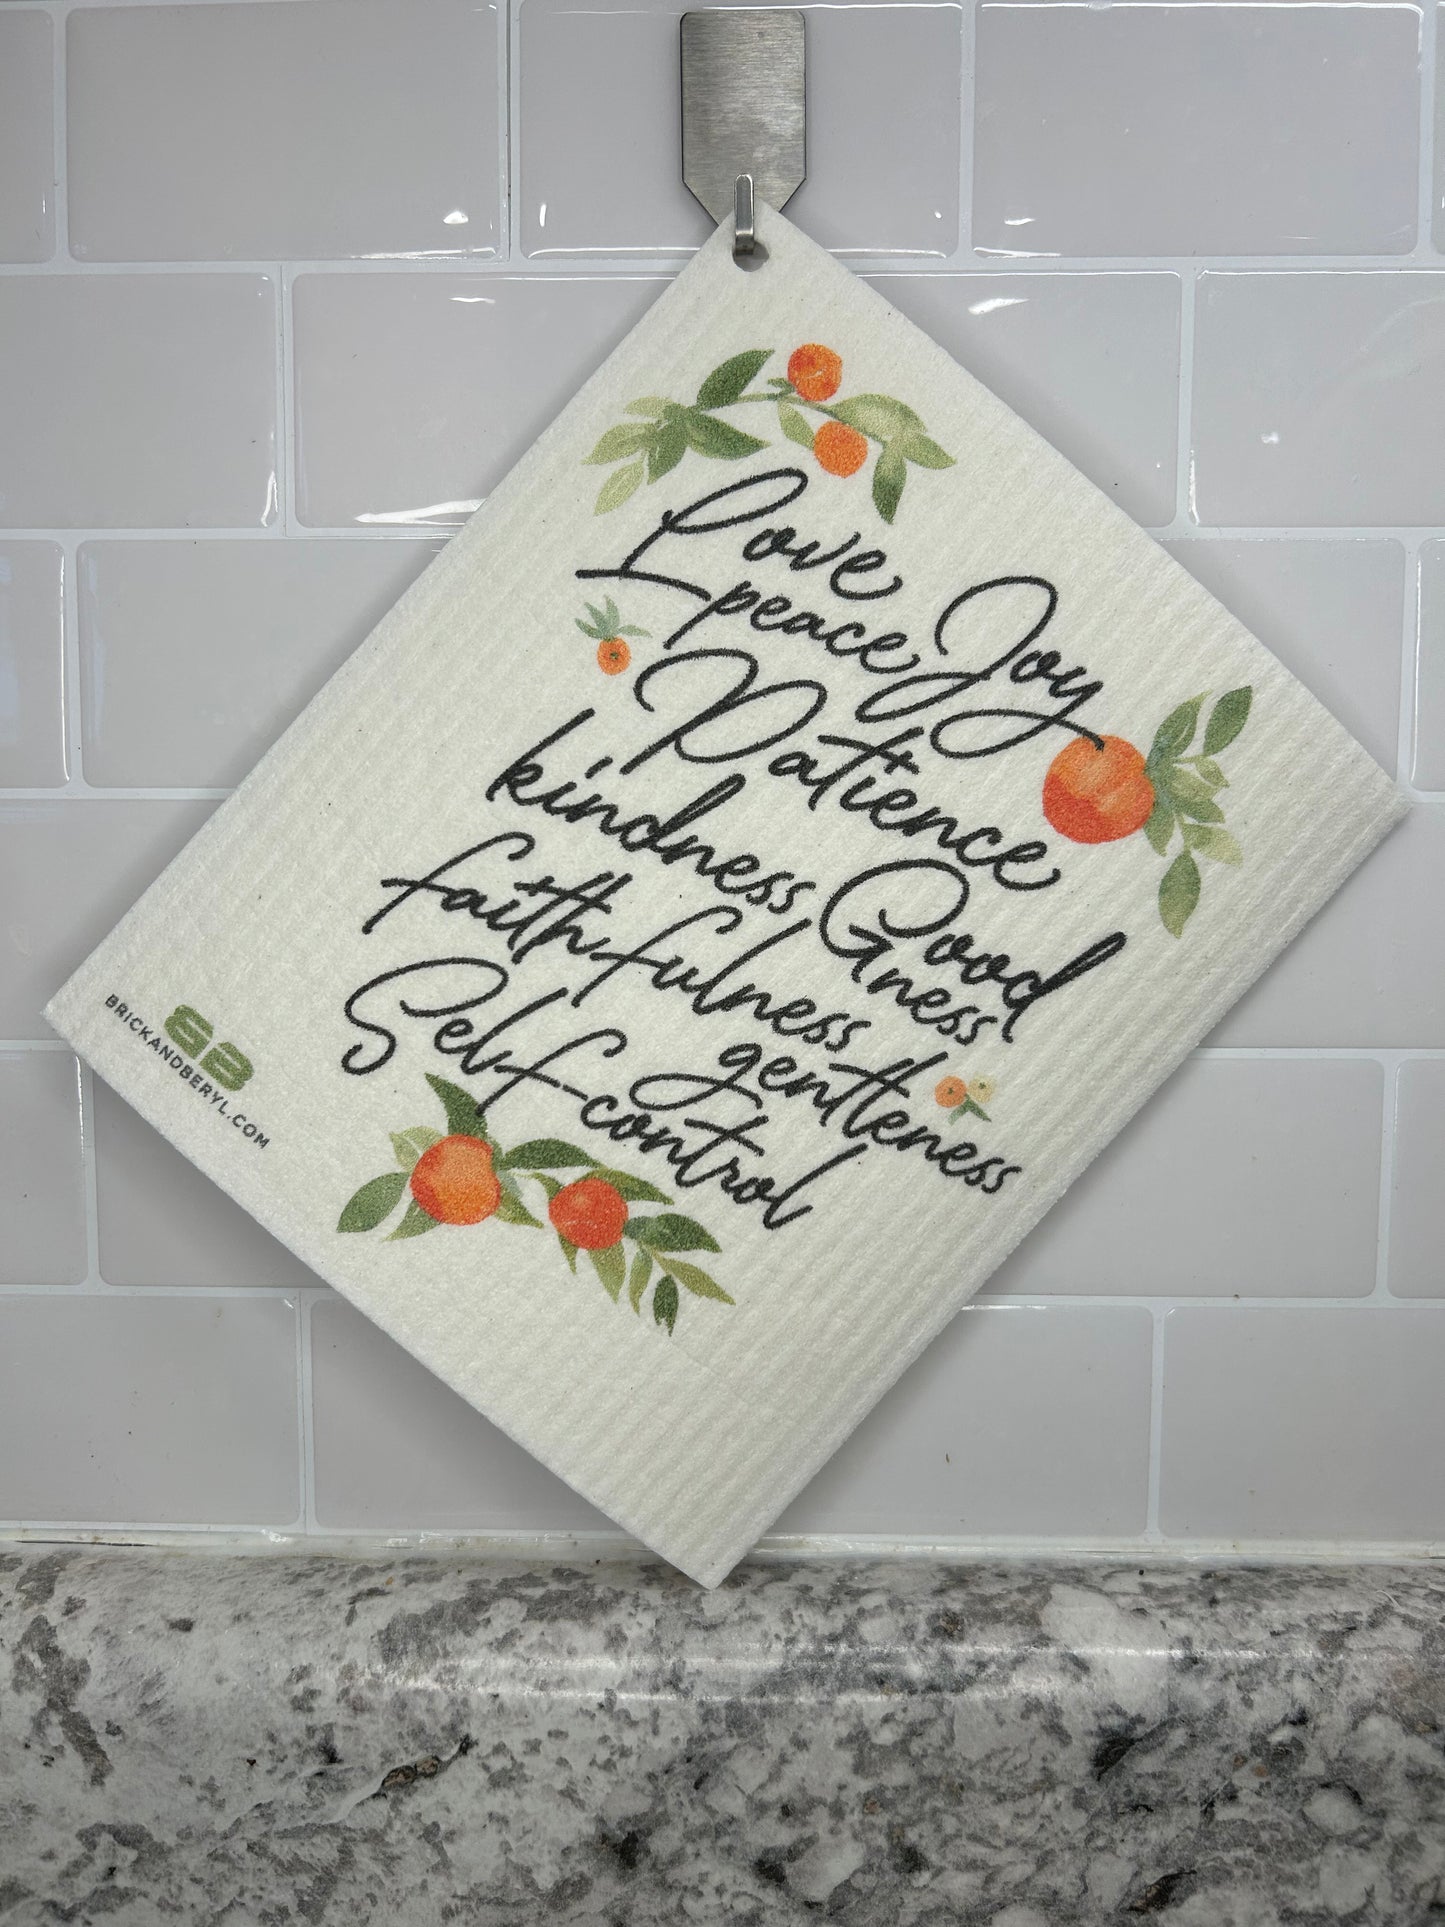 Love
peace Joy
Patience
kindness Good
ness
faithfulness
gentleness
Self control
BB
BRICKANDBERYL.COM